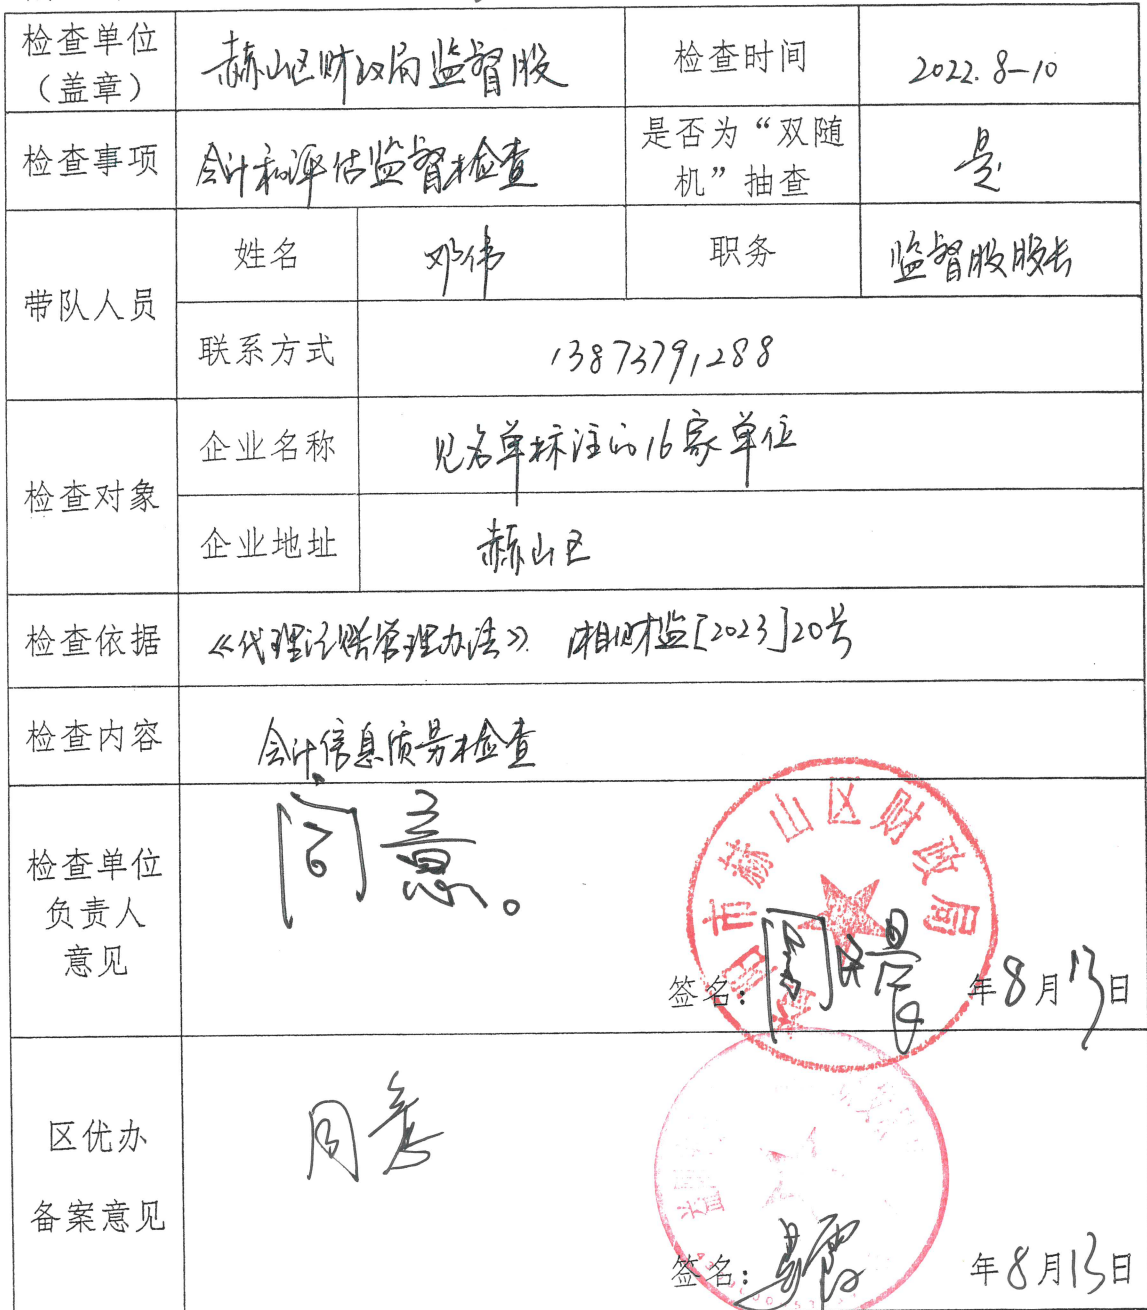 检查单位
（盖章）
赫山区财政局监督股
检查时间
2022.8-10
检查事项
会计和评估监督检查
是否为“双随
机”抽查
是
带队人员
姓名
邓伟
职务
监督股股长
联系方式
13873791288
检查对象
企业名称
见名单标注的16家单位
企业地址
赫山区
检查依据
《代理记账管理办法》 湘财监[2023]20号
检查内容
会计信息质量检查
检查单位
负责人
意见
同意。
益阳市赫山区财政局
签名：
年8月13日
区优办
备案意见
同意
签名：
年8月13日